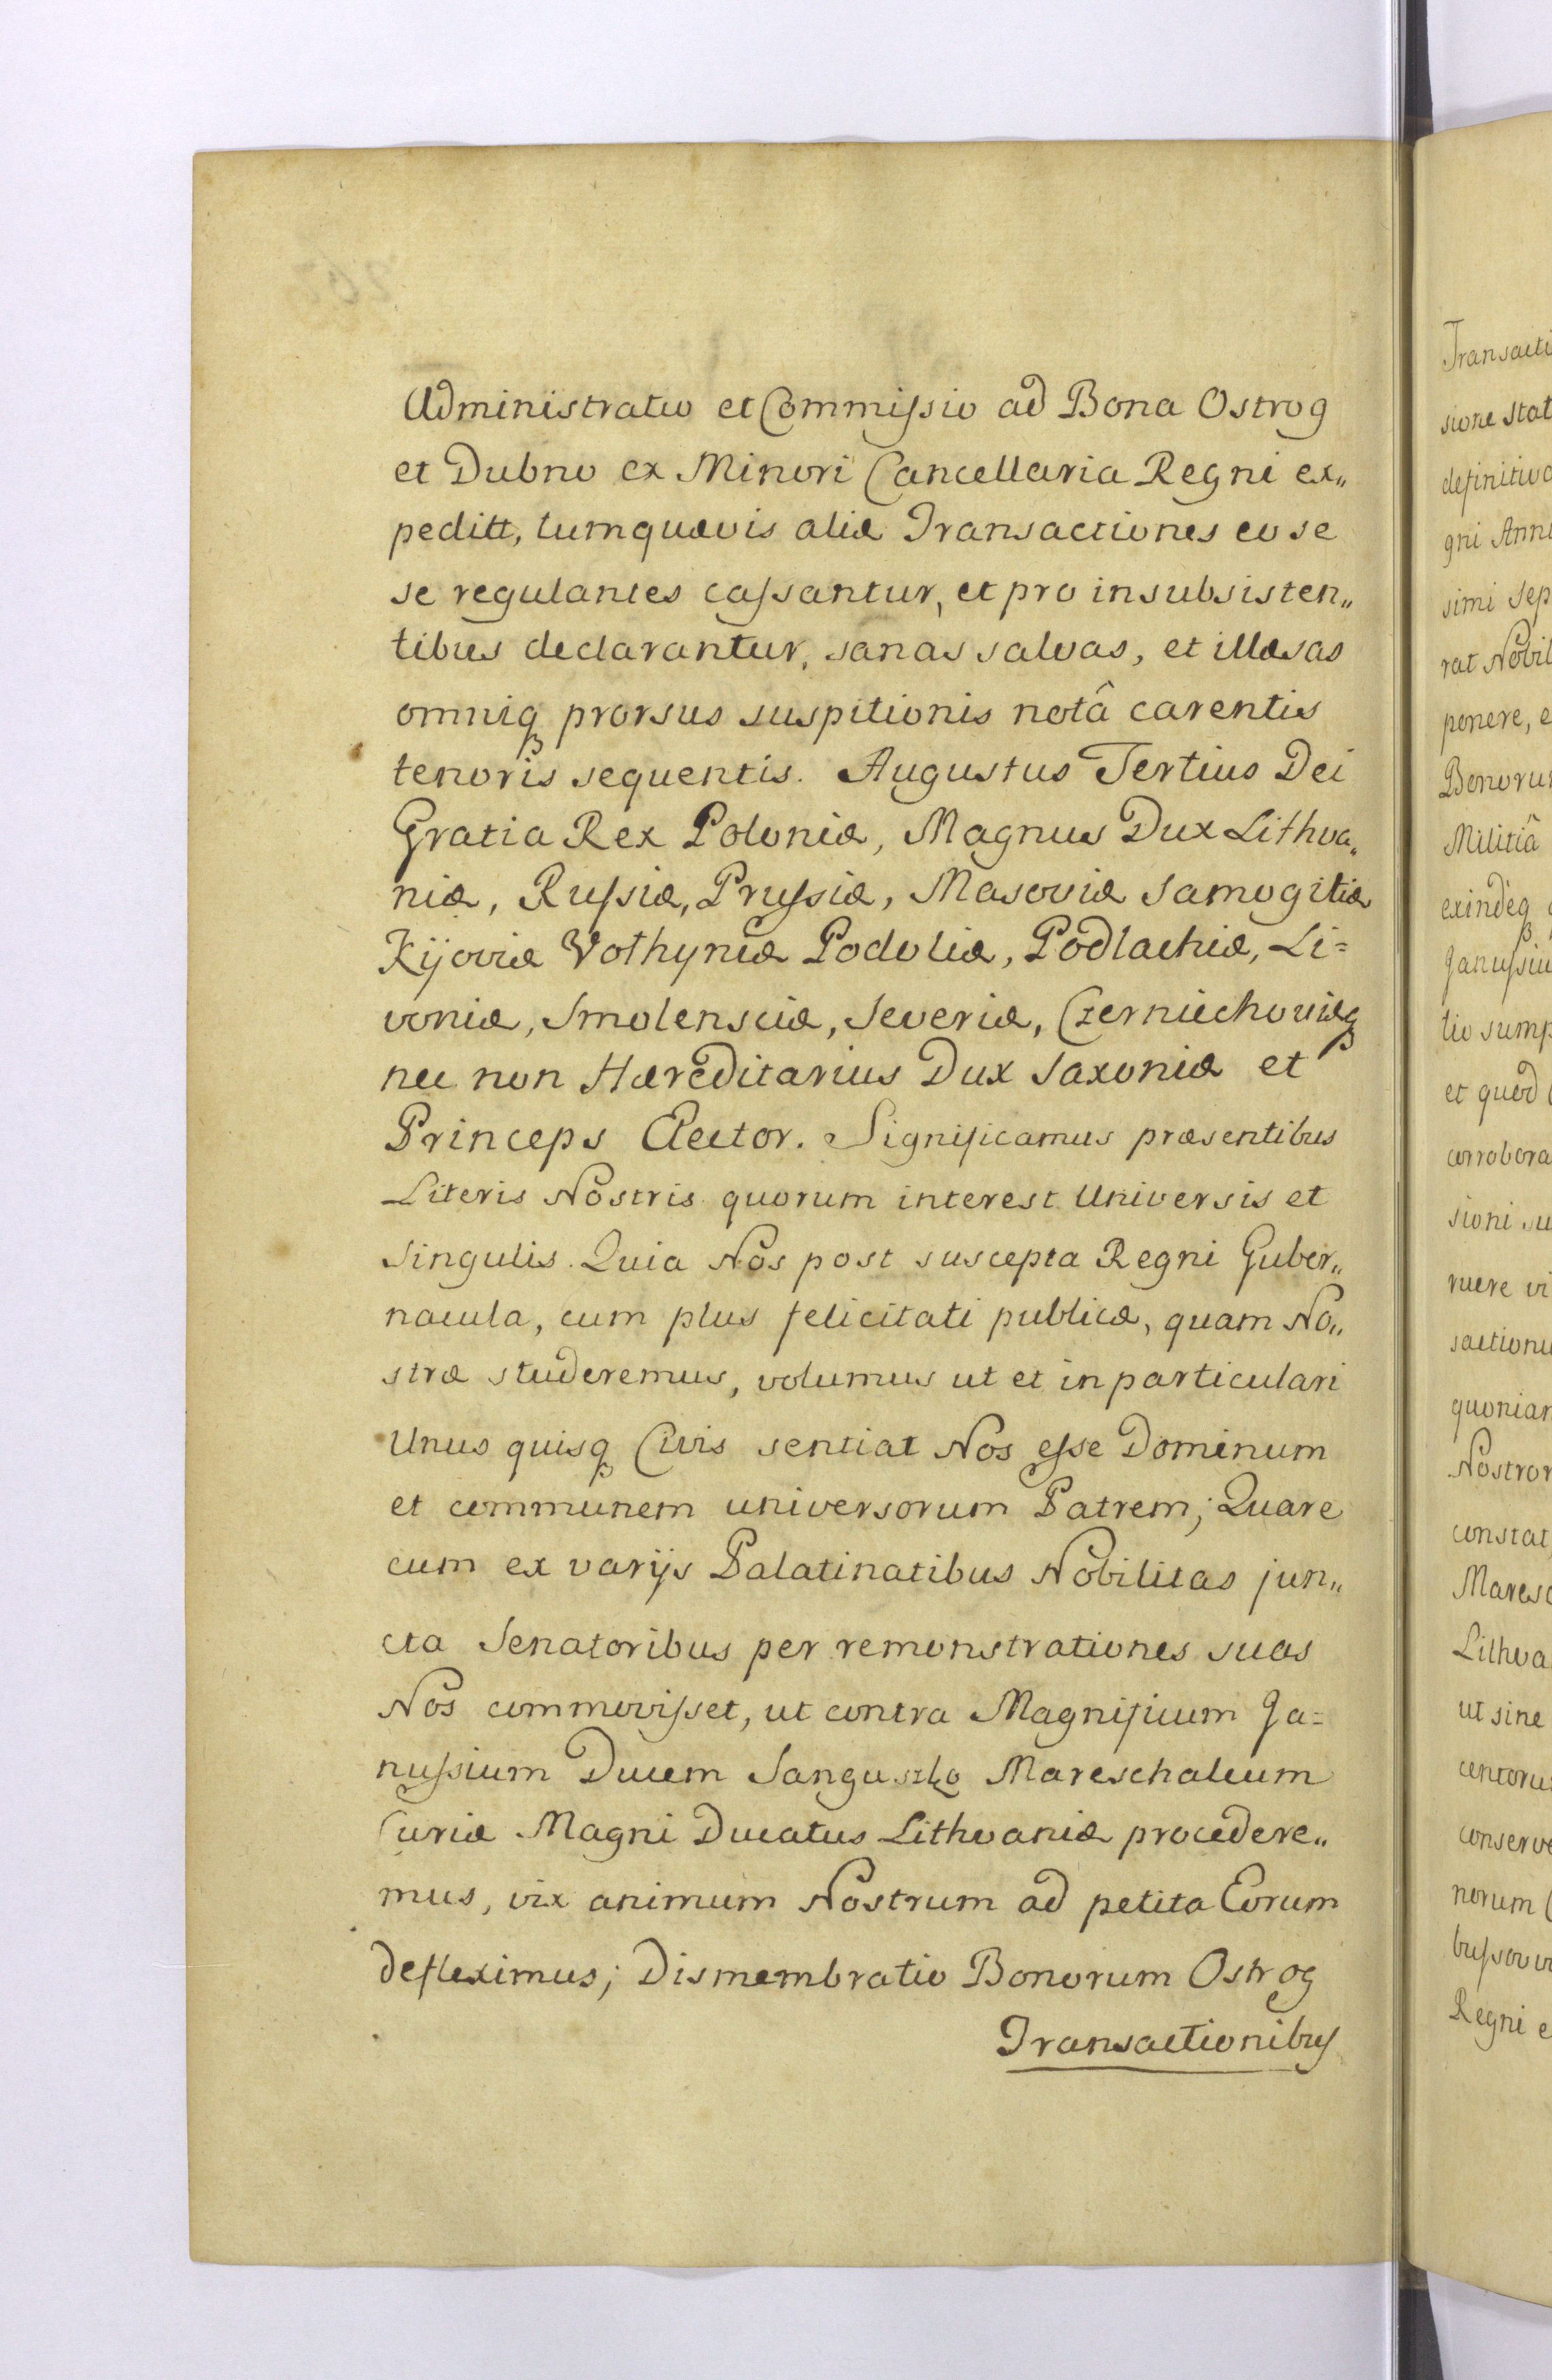 Administratio et Commissio ad Bona Ostrog
et Dubno ex Minori Cancellaria Regni ex„
peditt, tumquævis aliæ Transactiones eo se
se regulantes cassantur, et pro insubsisten„
tibus declarantur, sanas salvas, et illæsas
omniq prorsus suspitionis notâ carentis
tenoris sequentis. Augustus Tertius Dei
Gratia Rex Poloniæ, Magnus Dux Lithva„
niæ, Russiæ, Prussiæ, Masoviæ Samogitiæ
Kijoviæ Volhyniæ Podoliæ, Podlachiæ, Li=
voniæ, Smolensciæ, Severiæ, Czerniechoviæq
nec non Hæreditarius Dux Saxoniæ et
Princeps Elector. Significamus præsentibus
Literis Nostris quorum interest Universis et
Singulis. Quia Nos post suscepta Regni Guber„
nacula, cum plus felicitati publicæ, quam No„
stræ studeremus, volumus ut et in particulari
Unus quisq Civis sentiat Nos esse Dominum
et communem universorum Patrem; Quare
cum ex varijs Palatinatibus Nobilitas jun„
cta Senatoribus per remonstrationes suas
Nos commovisset, ut contra Magnificum Ja=
nussium Ducem Sanguszko Mareschalcum
Curiæ Magni Ducatus Lithvaniæ procedere„
mus, vix animum Nostrum ad petita Eorum
defleximus; Dismembratio Bonorum Ostrog
Transactionibus
Transacti
sione stat
definitiva
gni Anni
simi Sep
rat Nobil
ponere, e
Bonorum
Militiâ
exindeq
Janussiu
tio sump
et quod
corrobora
sioni su
ruere vi
sactionu
quoniam
Nostror
constat
Maresc
Lithva
ut sine
centoru
conserve
norum
bussovi
Regni e